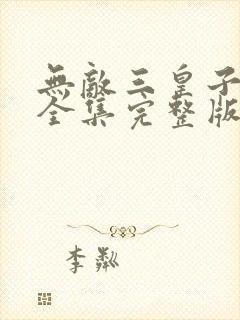 無敵三皇子
全集完整版
李粼